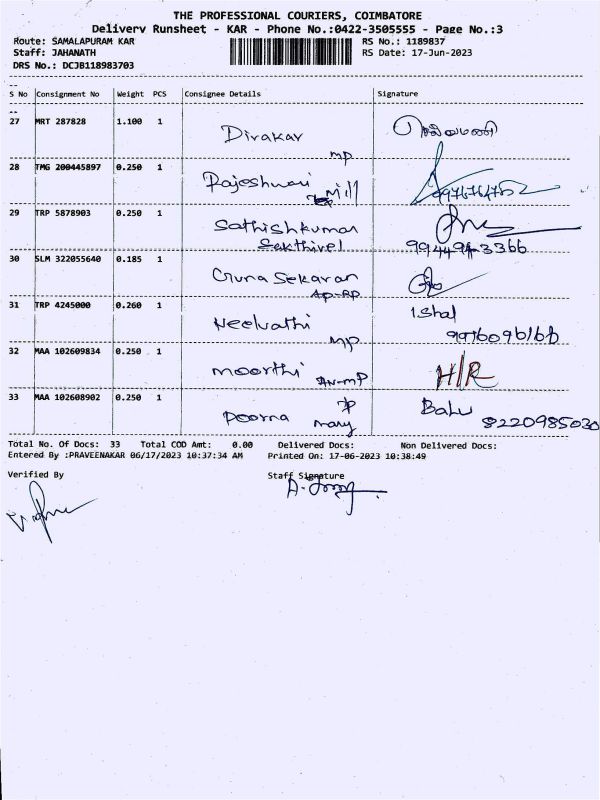 THE PROFESSIONAL COURIERS, COIMBATORE
Delivery Runsheet - KAR - Phone No.:0422-3505555 - Page No.:3
Route: SAMALAPURAM KAR RS No.: 1189837
Staff: JAHANATH RS Date: 17-Jun-2023
DRS No.: DCJB118983703
S No Consignment No Weight PCS Consignee Details Signature
27 MRT 287828 1.100 1
Divakar
mp
28 TMG 200445897 0.250 1
Rajeshwari Mill
29 TRP 5878903 0.250 1
Sathishkumar
Sakthivel 9944943366
30 SLM 322055640 0.185 1
Guna Sekaran
Ap-RP
31 TRP 4245000 0.260 1 Ishal
Neelvathi
mp
32 MAA 102609834 0.250 1
moorthi H/R
33 MAA 102608902 0.250 1 Balu
Poorna 8220985030
Total No. Of Docs: 33 Total COD Amt: 0.00 Delivered Docs: Non Delivered Docs:
Entered By :PRAVEENAKAR 06/17/2023 10:37:34 AM Printed On: 17-06-2023 10:38:49
Verified By Staff Signature